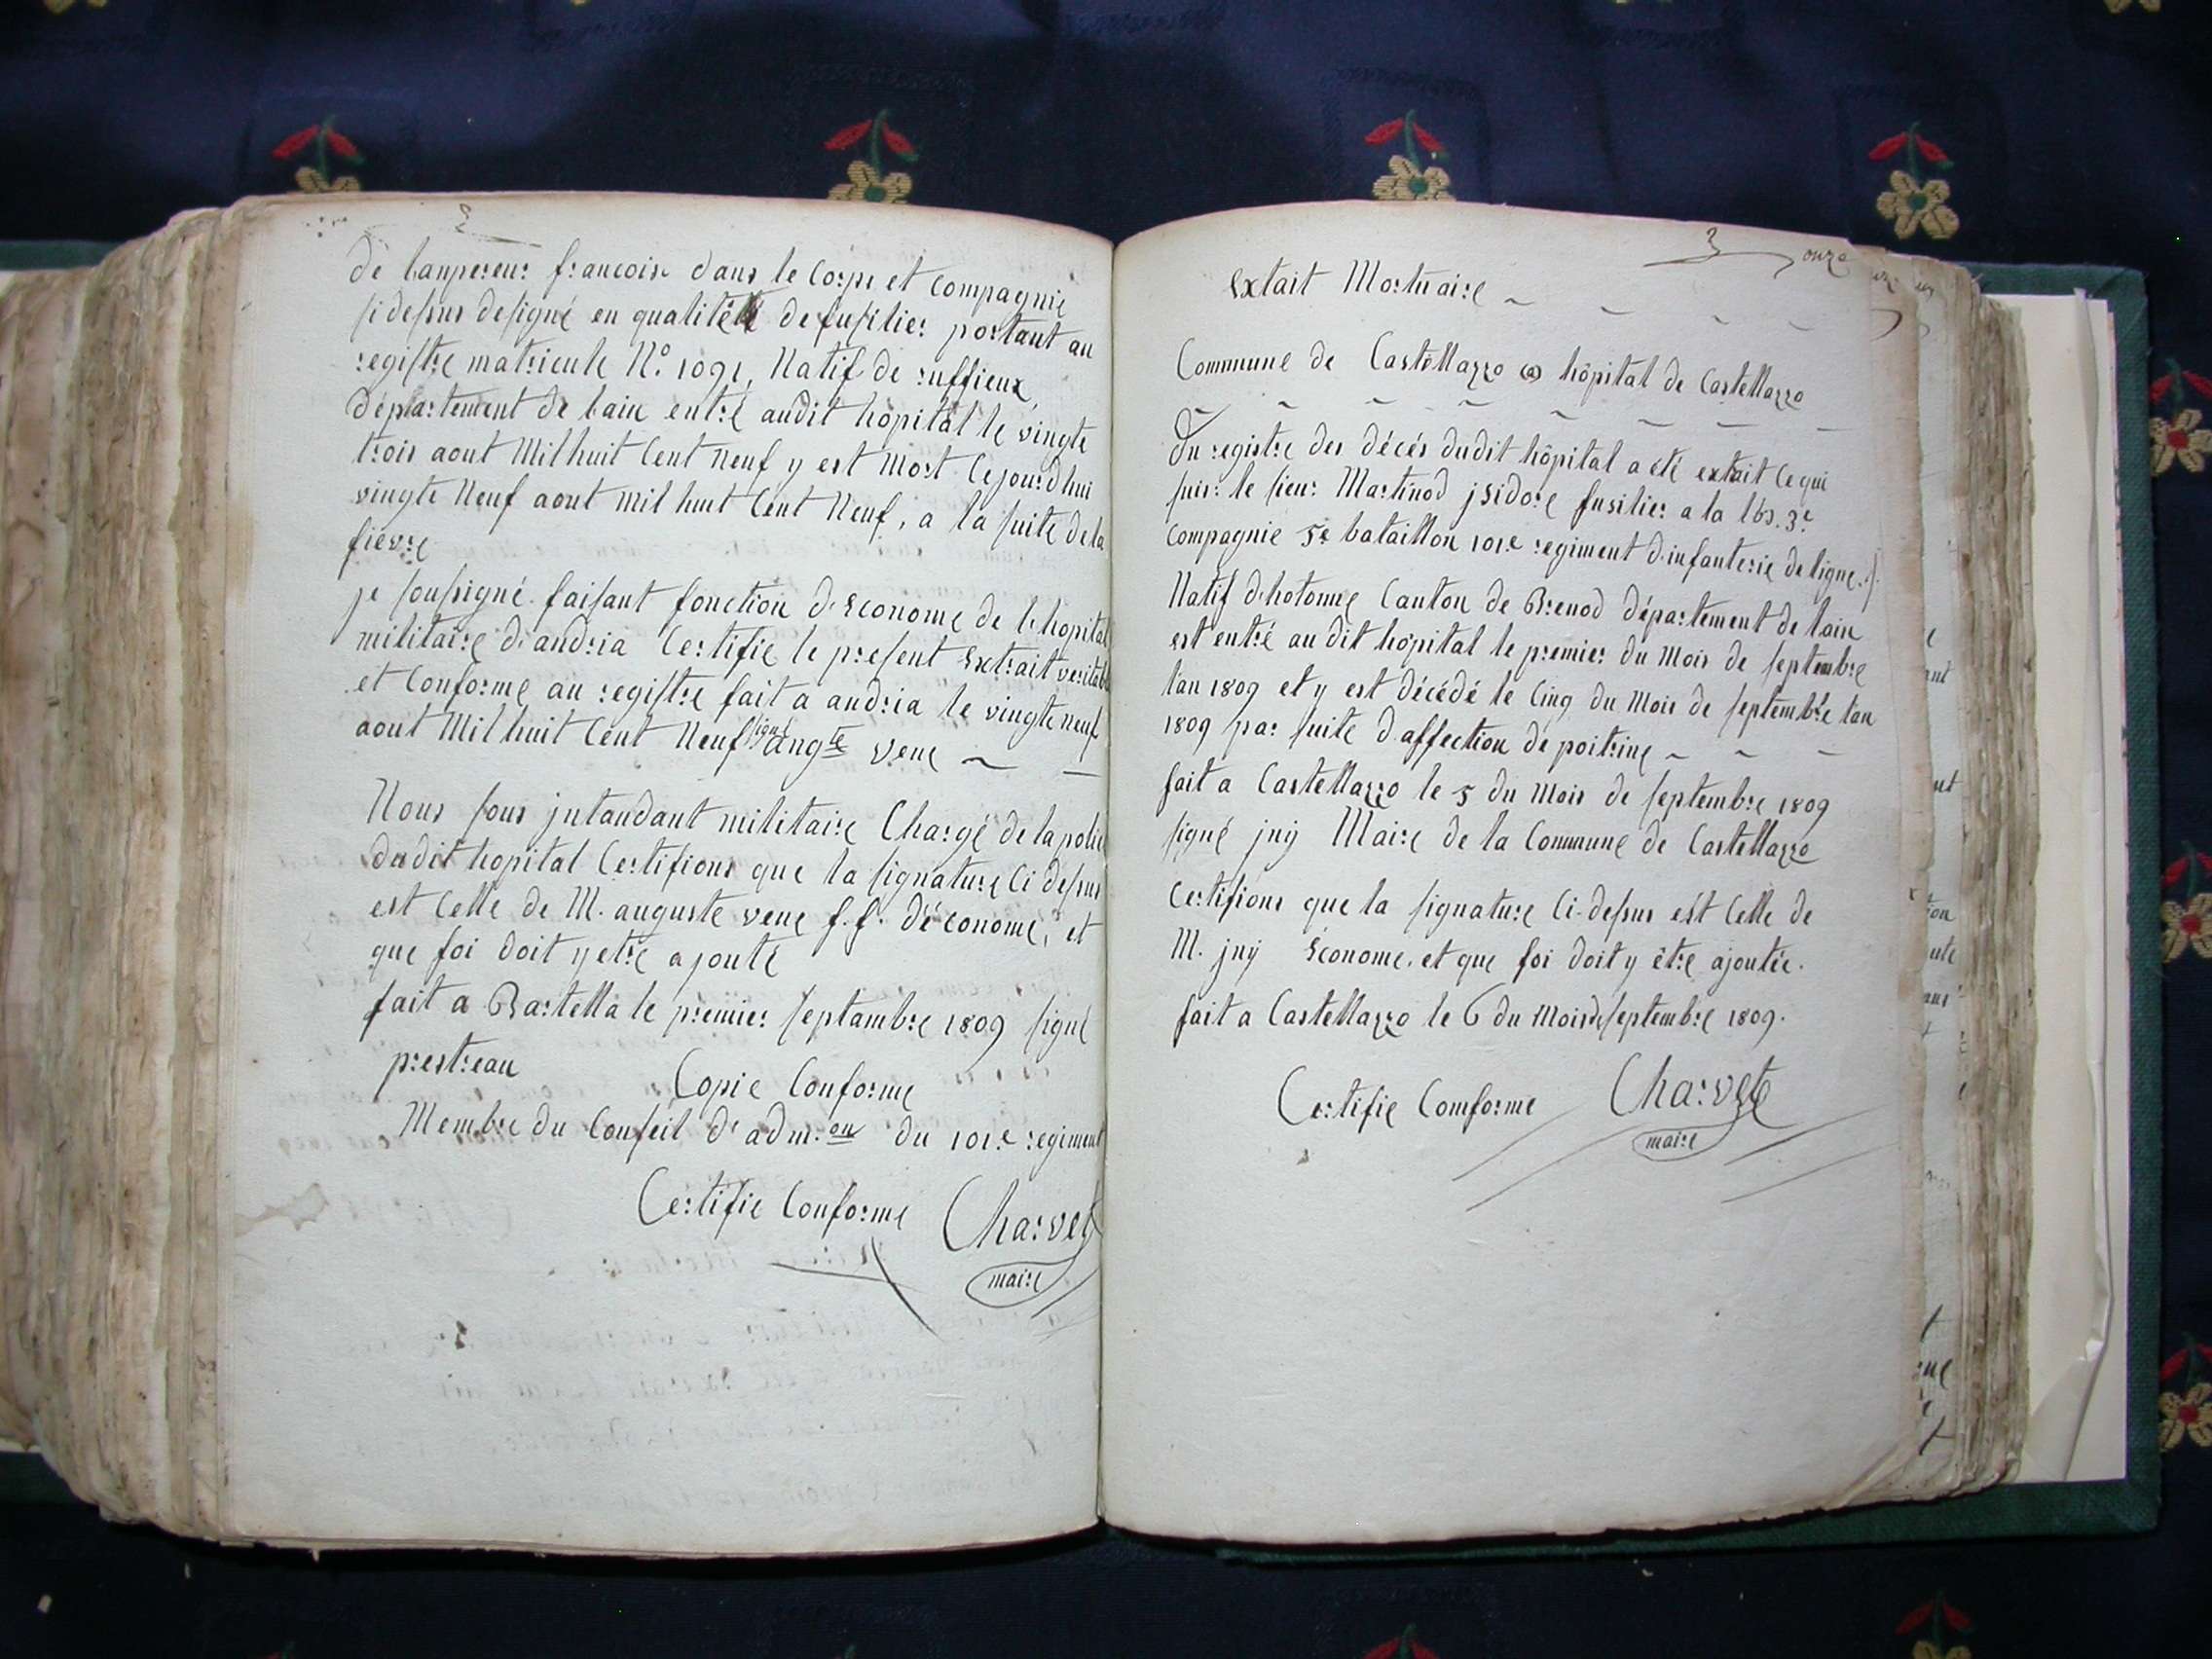 de lanpereur francoise dans le Corps et compagnie
si dessus designé en qualité de fusilier portant au
registre matricule N.o 1091, Natif de ruffieux,
département de lain entré audit hopital le vingte
trois aout Mil huit Cent neuf y est Mort Cejourdhui
vingte Neuf aout mil huit Cent Neuf, a la suite de la
fievre
je soussigné faisant fonction d'Econome de l.hopital
militaire d'andria Certifie le present Extrait veritable
et Conforme au registre fait a andria le vingte neuf
aout Mil huit Cent Neuf signé augte vene
Nous sous jntandant militaire Chargé de la police
dudit hopital Certifions que la signature Ci dessus
est Celle de M. auguste vene f.f. d'économe, et
que foi doit y etre ajouté
fait a Bartella le premier septambre 1809 signé
prestreau
Copie Conforme
Membre du Conseil d'adm.on du 101.e regiment
Certifie Conforme Charvet
maire
3 onze
Extait Mortuaire
Commune de Castellazzo (a) hôpital de Castellazzo
Du registre des décés dudit hôpital a été extait Ce qui
suis: le sieur Martinod jsidore fusilier a la 3.e
Compagnie 5e bataillon 101.e regiment d.infanterie de ligne.
Natif d.hotonne Canton de Brenod département de lain
est entré au dit hôpital le premier du Mois de septembre
l'an 1809 et y est décédé le Cinq du Mois de septembre l'an
1809 par suite d.affection de poitrine
fait a Castellazzo le 5 du Mois de septembre 1809
signé jny Maire de la Commune de Castellazzo
Certifions que la signature Ci-dessus est Celle de
M. jny Econome. et que foi doit y être ajoutée.
fait a Castellazzo le 6 du Mois de septembre 1809.
Certifie Comforme Charvet
maire